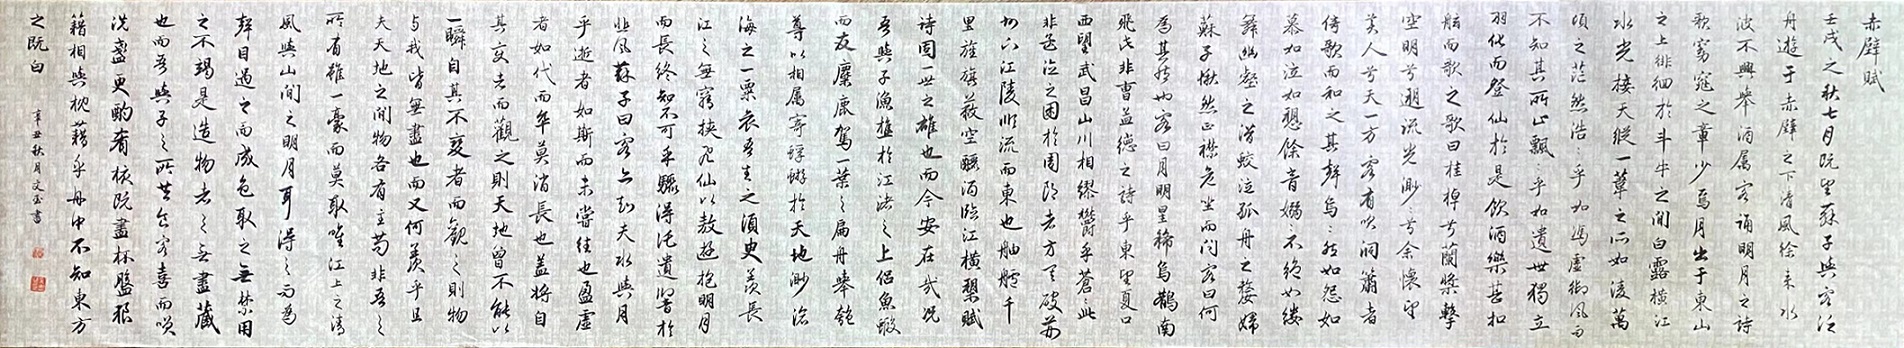 赤壁賦
壬戌之秋七月既望蘇子與客泛
舟遊于赤壁之下清風徐來水
波不興舉酒屬客誦明月之詩
歌窈窕之章少焉月出于東山
之上徘徊於斗牛之間白露橫江
水光接天縱一葦之所如淩萬
頃之茫然浩浩乎如馮虛御風而
不知其所止飄飄乎如遺世獨立
羽化而登仙於是飲酒樂甚扣
舷而歌之歌曰桂棹兮蘭槳擊
空明兮遡流光渺渺兮余懷望
美人兮天一方客有吹洞簫者
倚歌而和之其聲烏烏然如怨如
慕如泣如愬餘音嫋嫋不絕如縷
舞幽壑之潛蛟泣孤舟之嫠婦
蘇子愀然正襟危坐而問客曰何
為其然也客曰月明星稀烏鵲南
飛此非曹孟德之詩乎東望夏口
西望武昌山川相繆鬱乎蒼蒼此
非孟德之困於周郎者方其破荊
州下江陵順流而東也舳艫千
里旌旗蔽空釃酒臨江橫槊賦
詩固一世之雄也而今安在哉況
吾與子漁樵於江渚之上侶魚蝦
而友麋鹿駕一葉之扁舟舉匏
尊以相属寄蜉蝣於天地渺滄
海之一粟哀吾生之須臾羨長
江之無窮挾飛仙以敖遊抱明月
而長終知不可乎驟得託遺響於
悲風蘇子曰客亦知夫水與月
乎逝者如斯而未嘗往也盈虛
者如代而卒莫消長也蓋將自
其變者而觀之則天地曾不能以
一瞬自其不變者而觀之則物
與我皆無盡也而又何羨乎且
夫天地之間物各有主苟非吾之
所有雖一豪而莫取唯江上之清
風與山間之明月耳得之而為
聲目遇之而成色取之無禁用
之不竭是造物者之無盡藏
也而吾與子之所共食客喜而笑
洗盞更酌肴核既盡杯盤狼
籍相與枕藉乎舟中不知東方
之既白
辛丑秋月文玉書